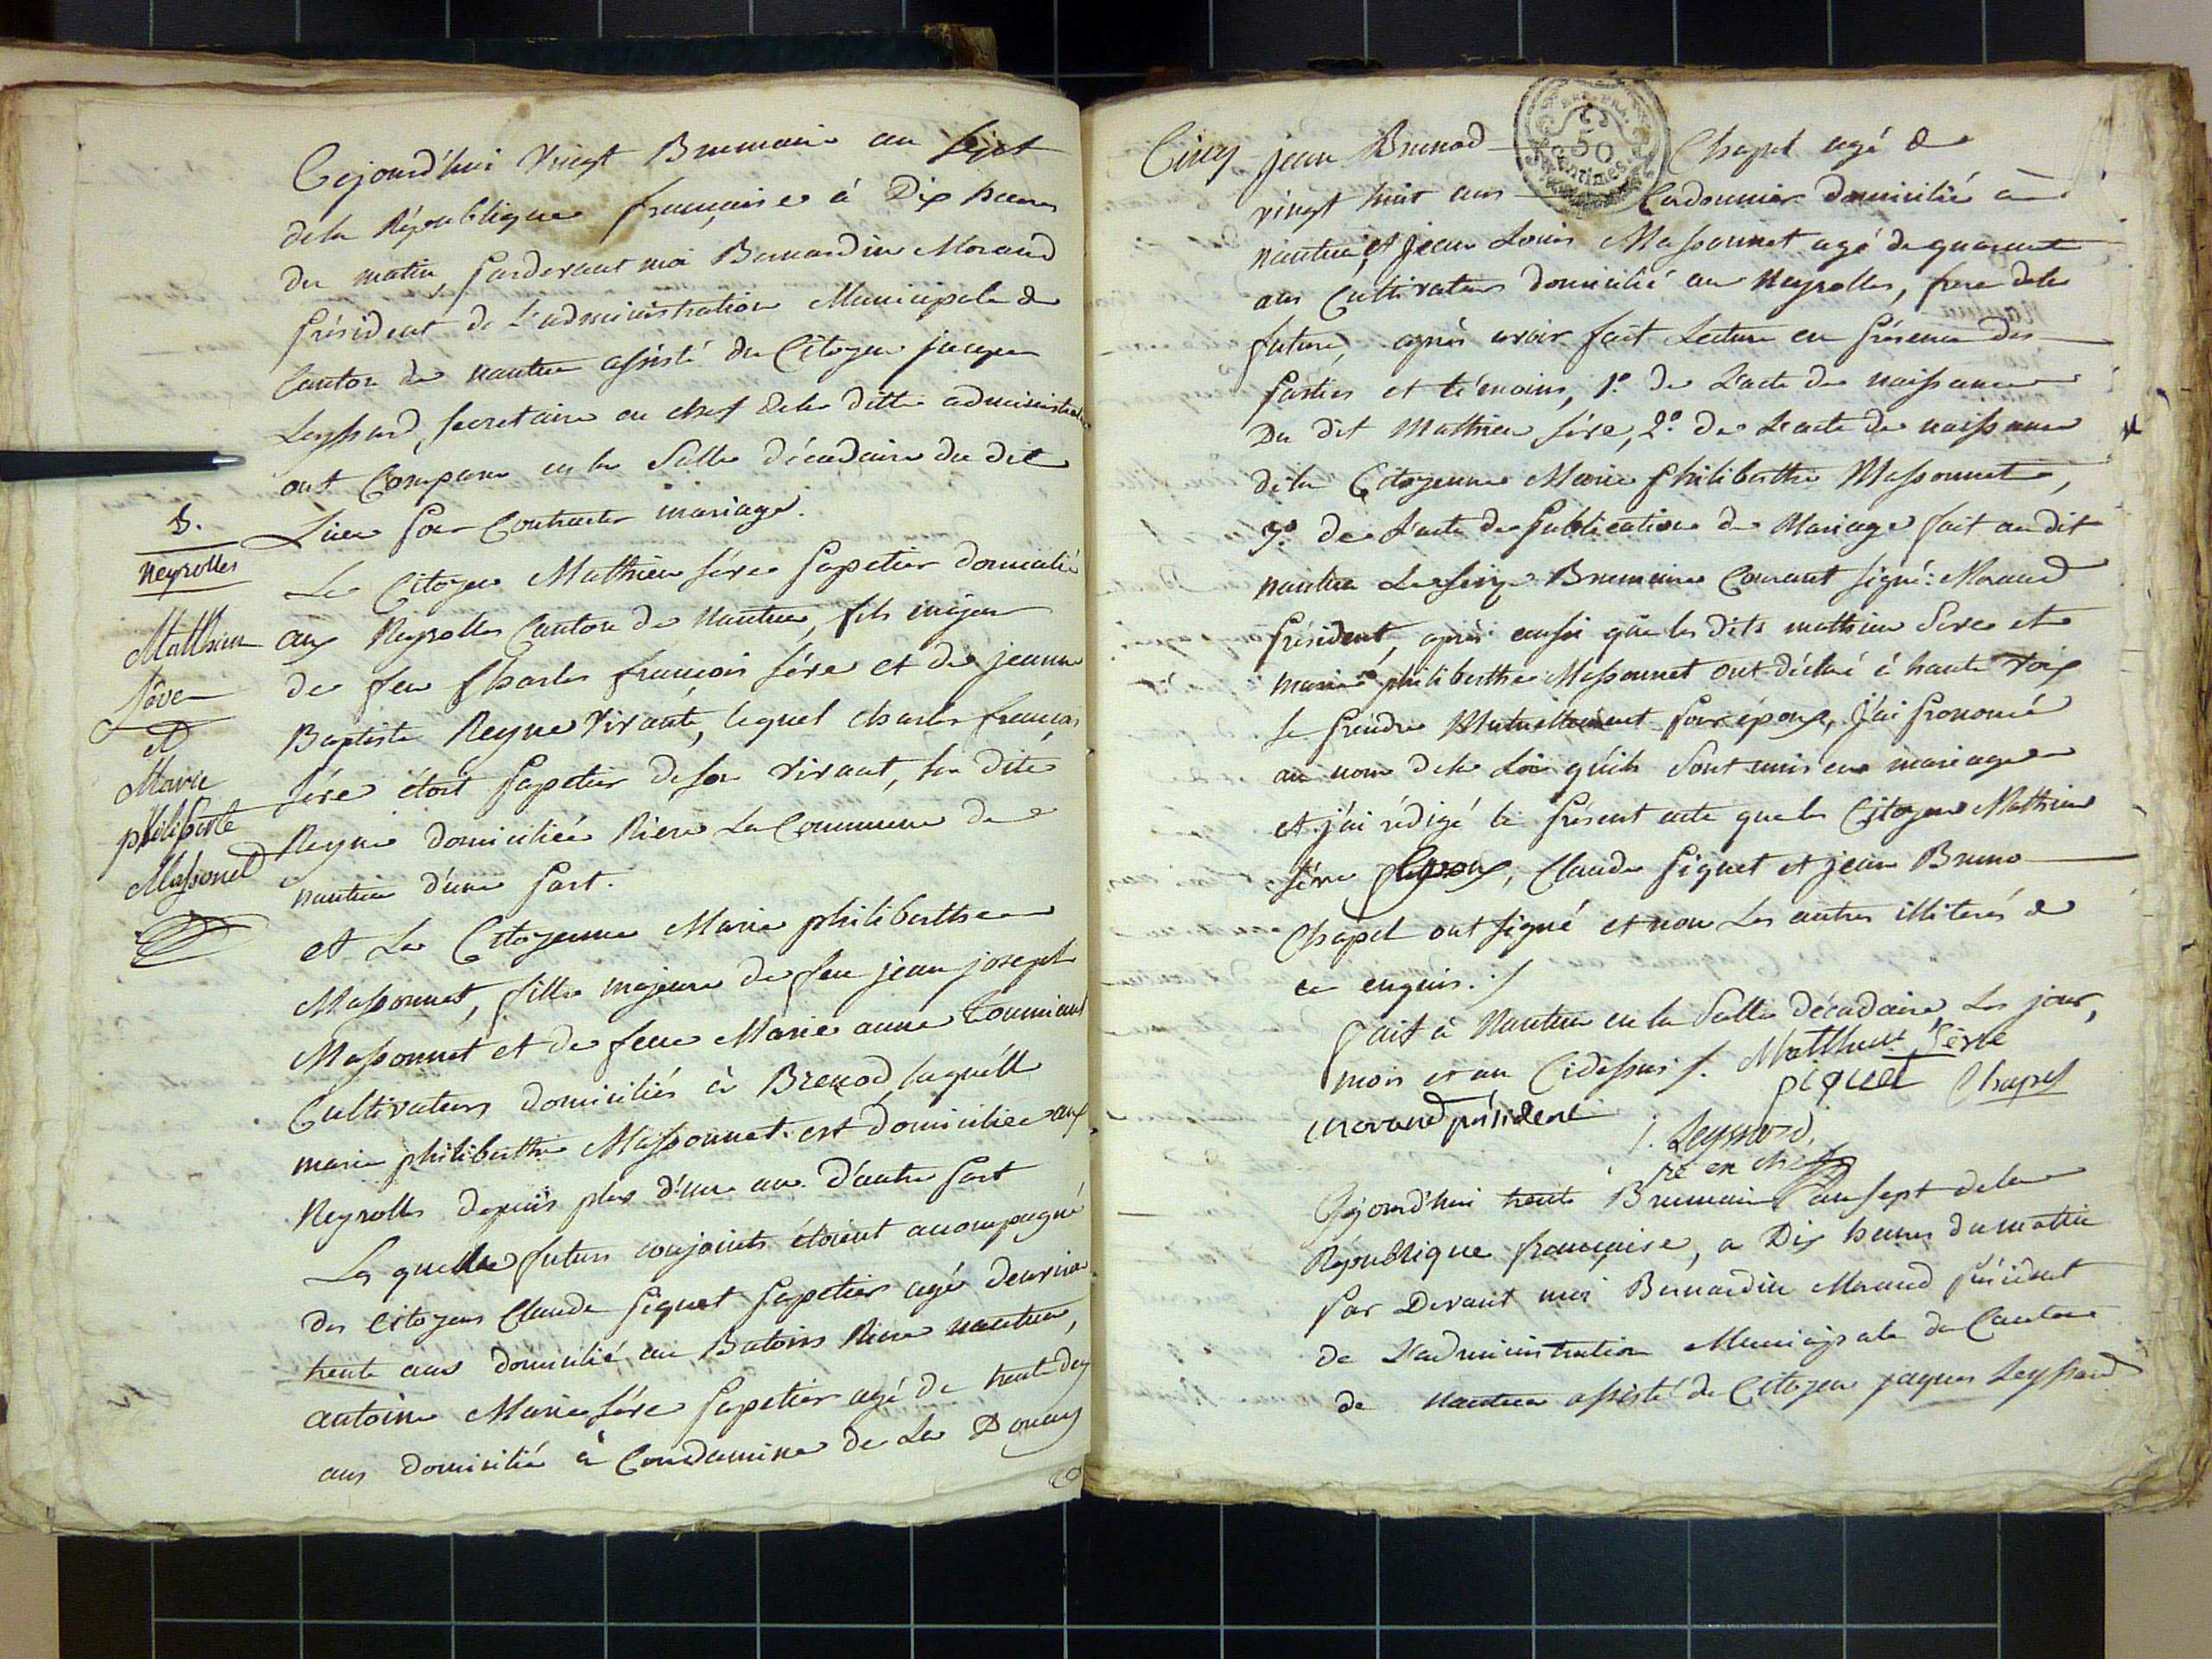 Cejourd'hui Vingt Brumaire an Sept
dela République française à Dix heures
du matin, pardevant moi Bernardin Morand
président de L'administration Municipale de
Canton de nantua assisté du Citoyen jacques
Leyssard, secretaire en chef dela ditte administration
ont Comparu en la Salle décadaire du dit
Lieu pour Contracter mariage.
5.
Neyrolles
Matthieu
Sève
et
Marie
philiberte
Massonet
Le Citoyen Matthieu sève papetier domicilié
aux Neyrolles Canton de Nantua, fils majeur
de feu Charles françois sève et de jeanne
Baptiste Reyne vivante, lequel charles françois
sève étoit papetier deson vivant, la dite
Reyne domiciliée Rière La Commune de
nantua d'une part.
et La Citoyenne Marie philiberthe
Massonnet, fille majeure de feu jean joseph
Massonnet et de feue Marie anne
Cultivateurs domiciliés à Brenod, laquelle
marie philiberthe Massonnet est domiciliée aux
Neyrolles depuis plus d'un an d'autre part
Les quels futurs conjoints étoient accompagné
des citoyens Claude piquet papetier agé denviron
trente ans domicilié au Batoirs Rière nantua,
antoine Marie sève papetier agé de trentedeux
ans domicilié à Condamine de La Douay
Cinq
REP. FRA.
50
Centimes
jean Brunod Chapel agé de
vingt huit ans Cordonnier domicilié à
nantua, et jean Louis Massonnet agé de quarante
ans Cultivateur domicilié au Neyrolles, frere dela
future, après avoir fait Lecture en présence des
parties et témoins, 1.º de L'acte de naissance
Du dit Matthieu sève, 2.º de Lacte de naissance
dela Citoyenne Marie philiberthe Massonnet,
3.º de Lacte de publication de Mariage fait audit
nantua Le seize Brumaire Courant signé: Morand
président, après aussi que les dits matthieu Seve et
marie philiberthe Massonnet ont déclaré à haute voix
se prendre Mutuellement pour époux, j'ai prononcé
au nom dela Loi qu'ils sont unis en mariage
et j'ai rédigé le présent acte que le Citoyen Matthieu
sève époux, Claude piquet et jean Bruno
Chapel ont signé et non Les autres illiterés de
ce enquis. /
fait à Nantua en la Salle décadaire, Les jour,
mois et an Cidessus /. Matthieu Sève
piquet Chapel
morand président
j. Leyssard,
sre en chef
Cejourd'hui trente Brumaire an sept dela
République française, a Dix heures du matin
par Devant moi Bernardin Morand président
de L'administration Municipale du Canton
de Nantua assisté du Citoyen jaques Leyssard